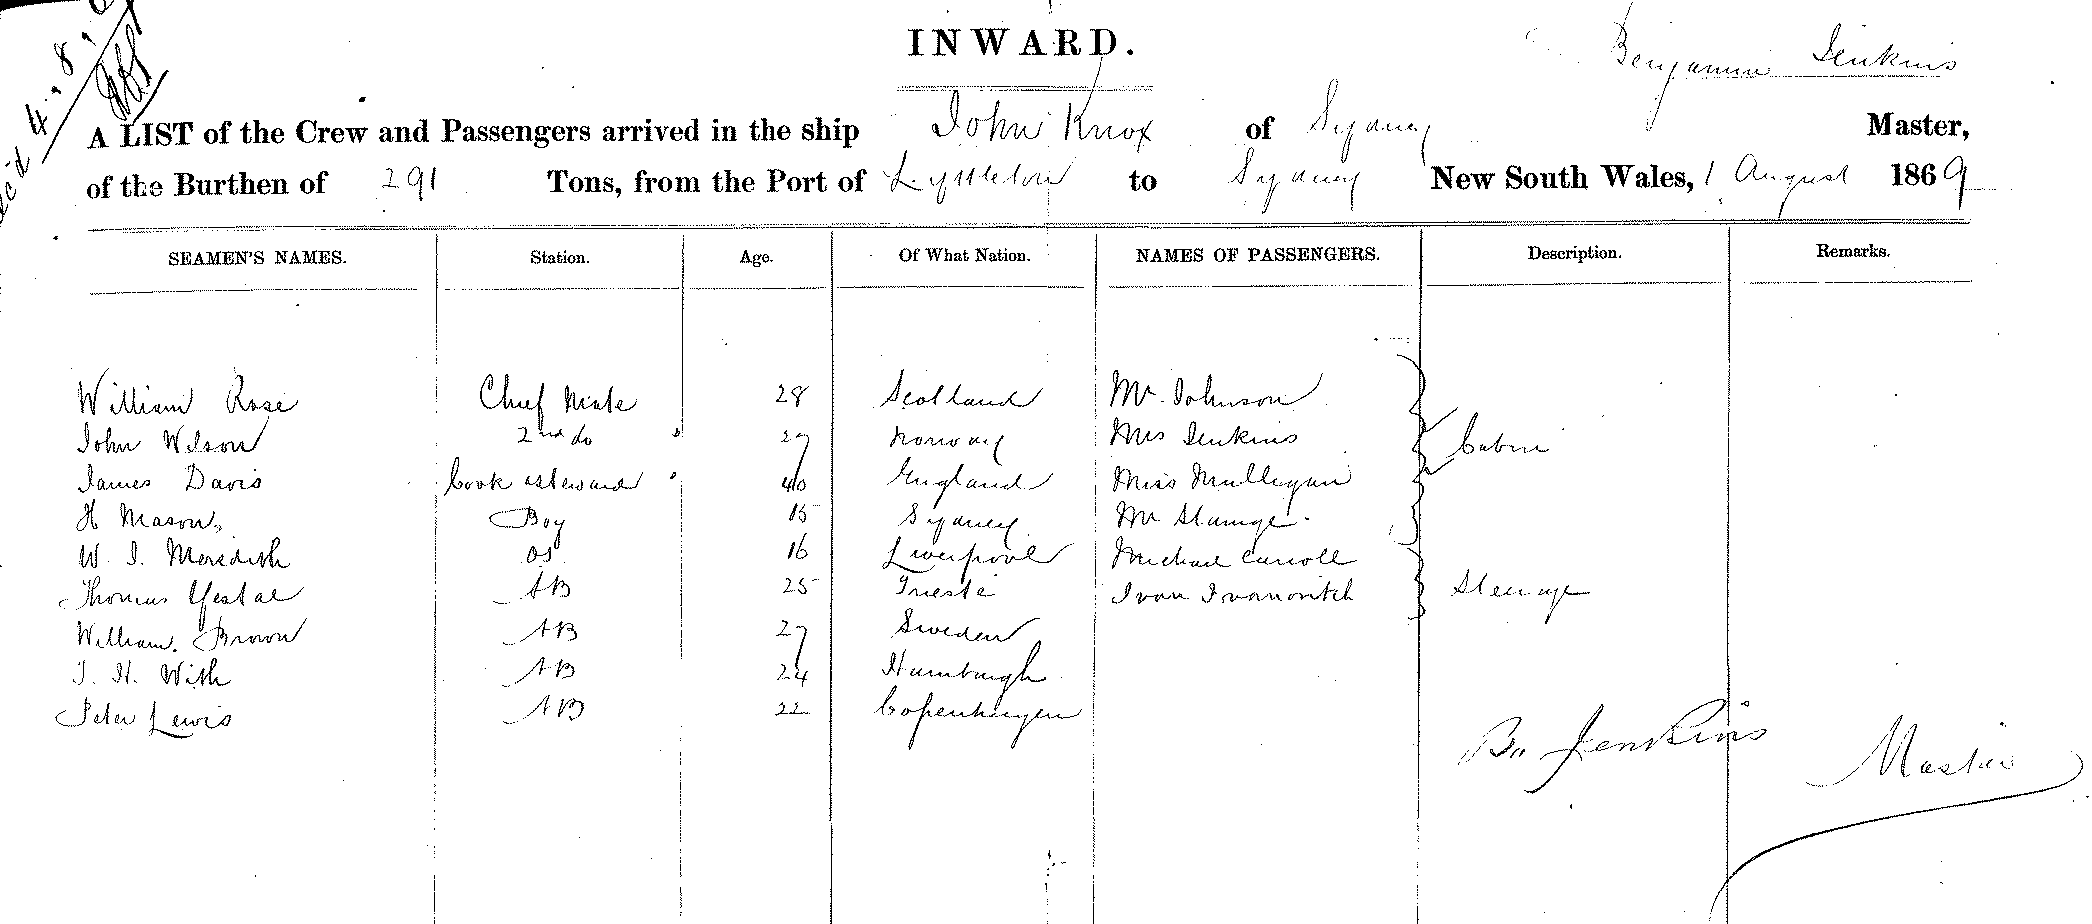 Rec'd 4.8.
INWARD.
Benjamin Jenkins
A LIST of the Crew and Passengers arrived in the ship John Knox of Sydney Master,
of the Burthen of 291 Tons, from the Port of Lyttleton to Sydney New South Wales, 1 August 1869
SEAMEN'S NAMES. Station. Age. Of What Nation. NAMES OF PASSENGERS. Description. Remarks.
William Rose Chief Mate 28 Scotland Mr Johnson
John Wilson 2nd do 27 Norway Mrs Jenkins Cabin
James Davis Cook & Steward 40 England Miss Mulligan
H Mason Boy 15 Sydney Mr Stange
W. J. Meredith OS 16 Liverpool Michael Carroll
Thomas AB 25 Trieste Ivan Ivanovitch Steerage
William Brown AB 27 Sweden
J. H. With AB 24 Hamburgh
Peter Lewis AB 22 Copenhagen
Bn Jenkins Master